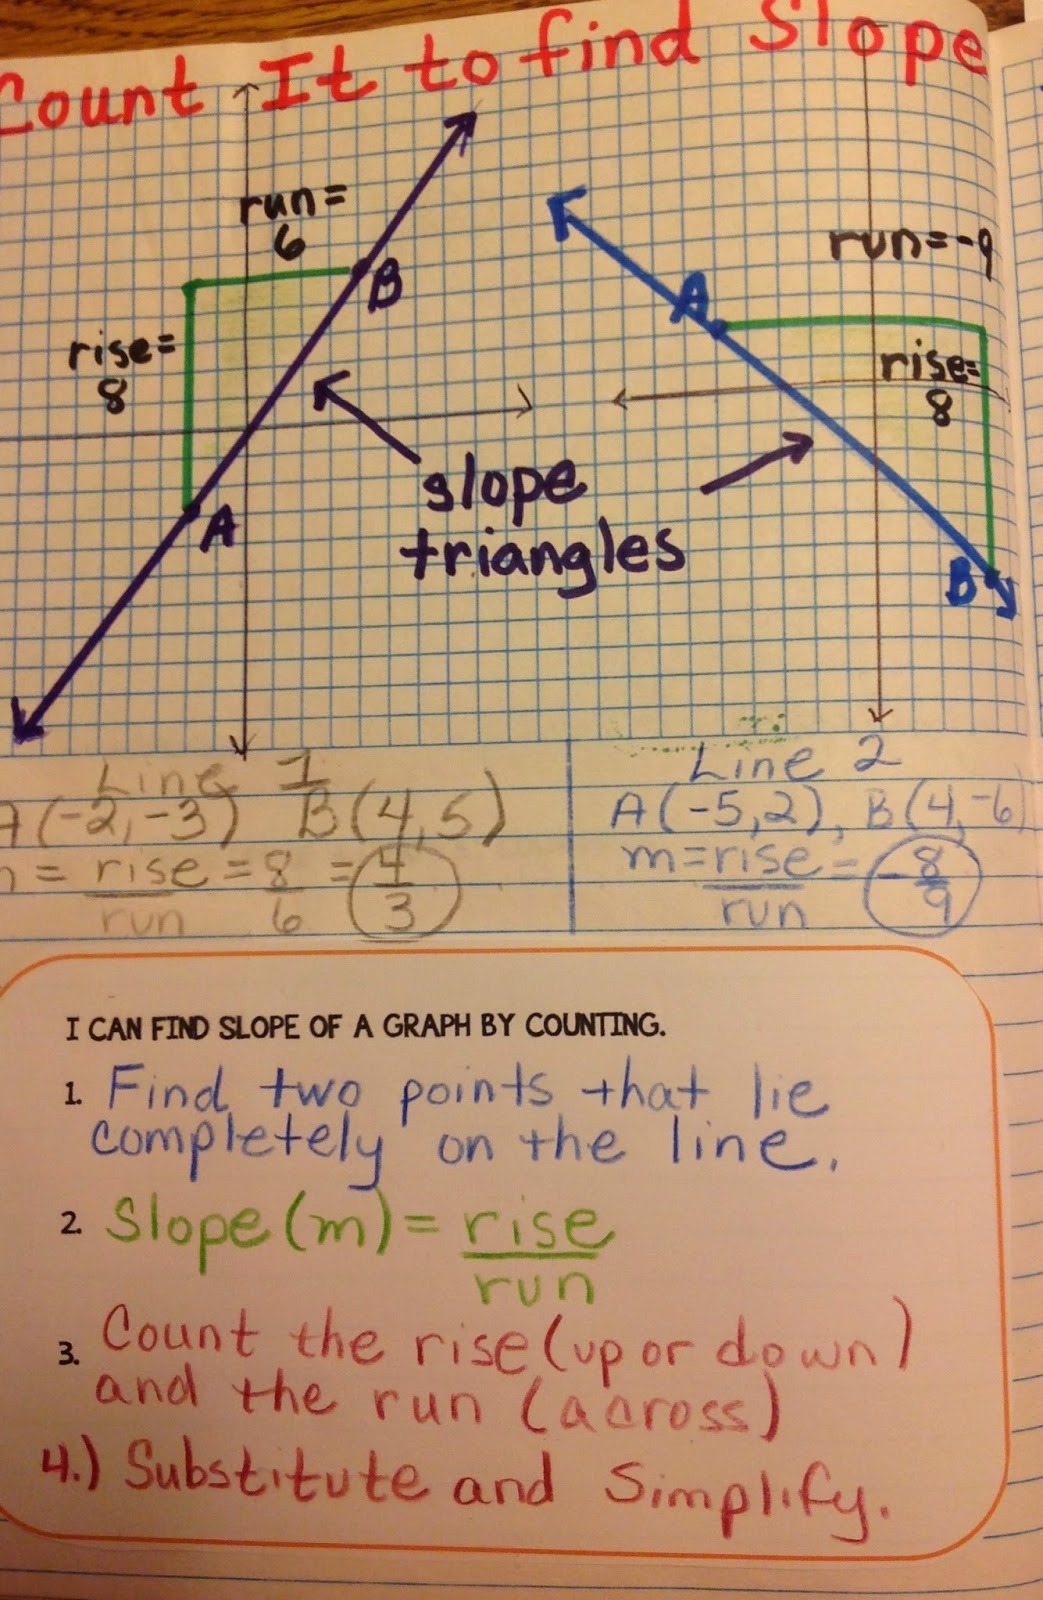 Count It to find Slope
run=
6
rise=
8
B
A
slope
triangles
run=-9
A
rise=
8
B
Line 1
A(-2,-3) B(4,5)
= rise = 8 = 4
run 6 3
Line 2
A(-5,2), B(4,-6)
m=rise = -8
run 9
I CAN FIND SLOPE OF A GRAPH BY COUNTING.
1. Find two points that lie
completely on the line.
2. Slope(m) = rise
run
3. Count the rise (up or down)
and the run (across)
4.) Substitute and Simplify.